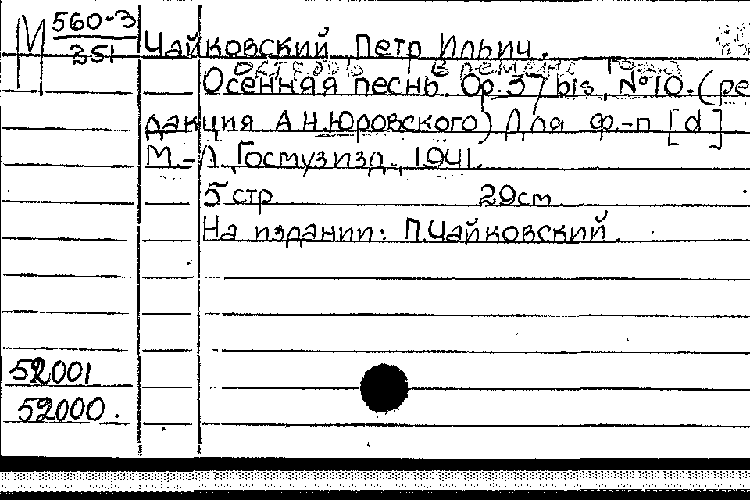 М 560-3
251
Чайковский Петр Ильич.
Октябрь времена года
Осенняя песнь. Op. 37 bis, №10. (ре
дакция А.Н.Юровского) Для ф.-п [d]
М.-Л. Госмузизд., 1941.
5 стр 29см
На издании: П.Чайковский.
52001
52000.